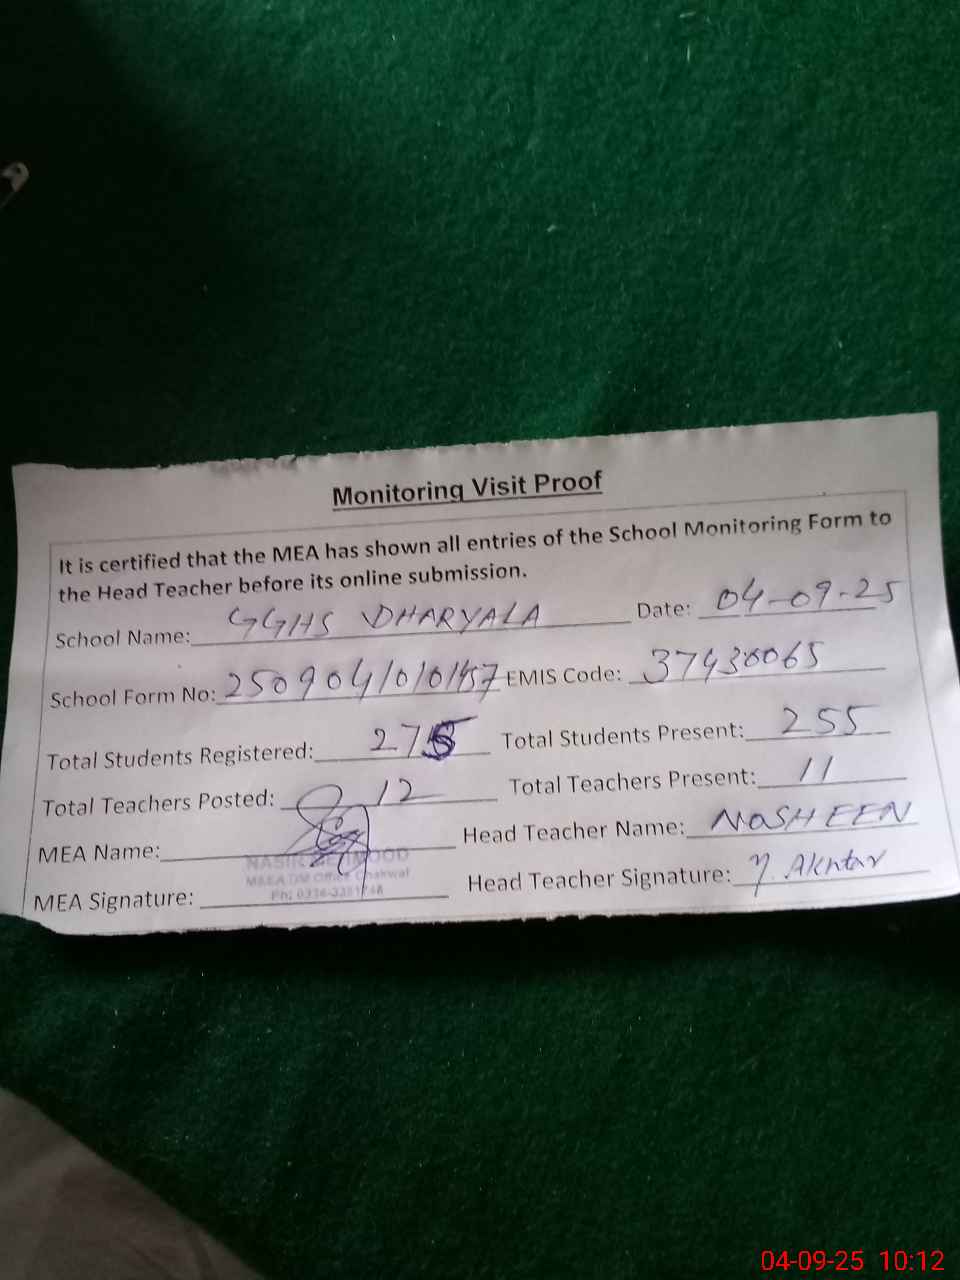 Monitoring Visit Proof
It is certified that the MEA has shown all entries of the School Monitoring Form to
the Head Teacher before its online submission.
School Name: GGHS DHARYALA Date: 04-09-25
School Form No: EMIS Code: 37430065
Total Students Registered: Total Students Present: 255
Total Teachers Posted: 12 Total Teachers Present: 11
MEA Name: Head Teacher Name: NOSHEEN
MEA Signature: Head Teacher Signature: N. Akhtar
04-09-25 10:12